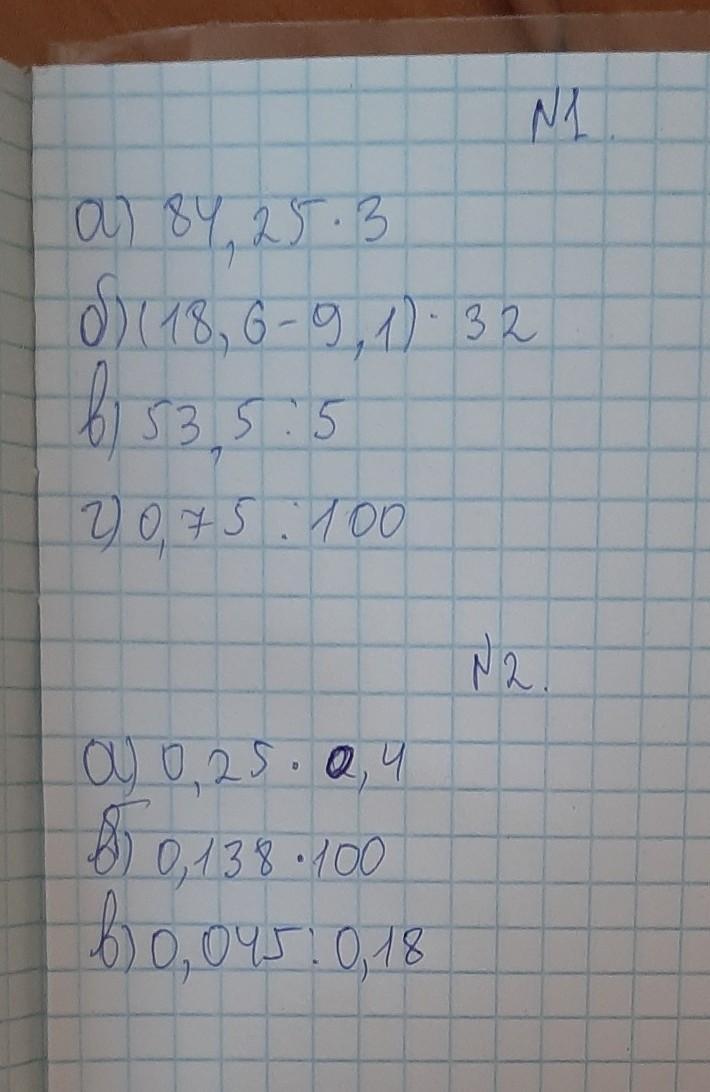 N1.
а) 84,25·3
б) (18,6-9,1)·32
в) 53,5:5
г) 0,75:100
N2.
а) 0,25·0,4
б) 0,138·100
в) 0,045:0,18